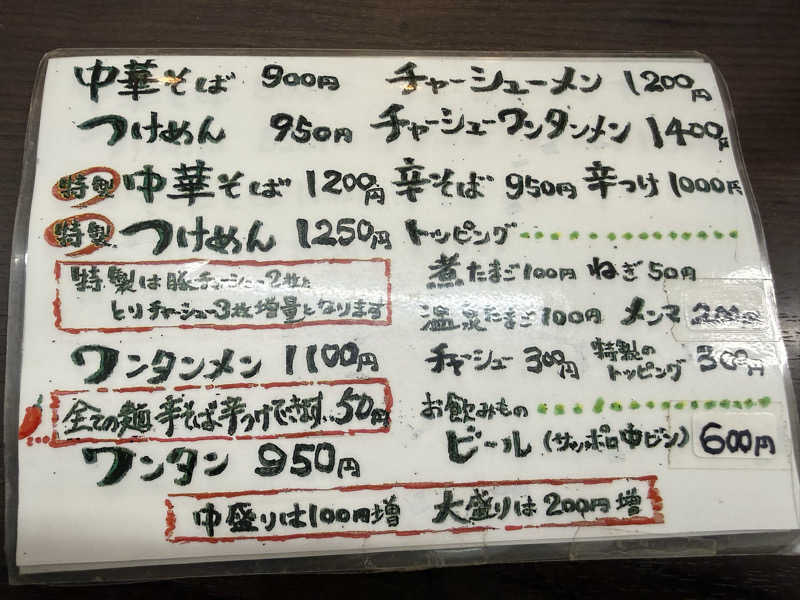 中華そば 900円
つけめん 950円
特製 中華そば 1200円
特製 つけめん 1250円
特製は豚チャーシュー2枚と
とりチャーシュー3枚増量となります
ワンタンメン 1100円
全ての麺 辛そば辛つけできます‥50円
ワンタン 950円
チャーシューメン 1200円
チャーシューワンタンメン 1400円
辛そば 950円 辛つけ 1000円
トッピング
煮たまご100円 ねぎ50円
温泉たまご100円 メンマ 200円
チャーシュー 300円 特製のトッピング 300円
お飲みもの
ビール (サッポロ中ビン) 600円
中盛りは100円増 大盛りは200円増